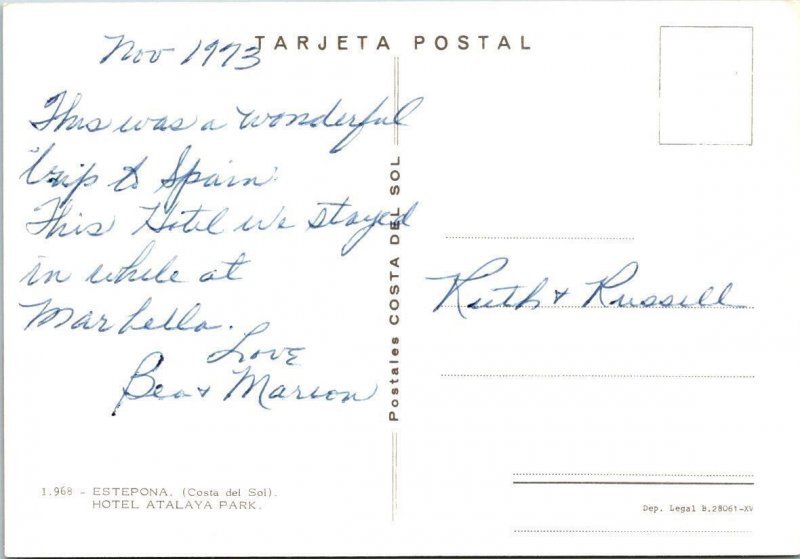 Nov 1973
TARJETA POSTAL
This was a wonderful
trip to Spain
This Hotel we stayed
in while at
Marbella.
Love
Bea + Marion
Postales COSTA DEL SOL
Ruth + Russell
1.968 - ESTEPONA. (Costa del Sol).
HOTEL ATALAYA PARK.
Dep. Legal B.28061-XV